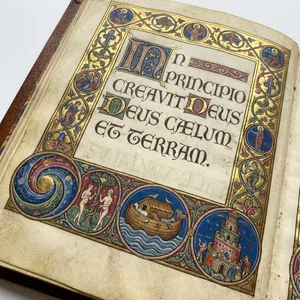 IN
PRINCIPIO
CREAVIT DEUS
DEUS CÆLUM
ET TERRAM.